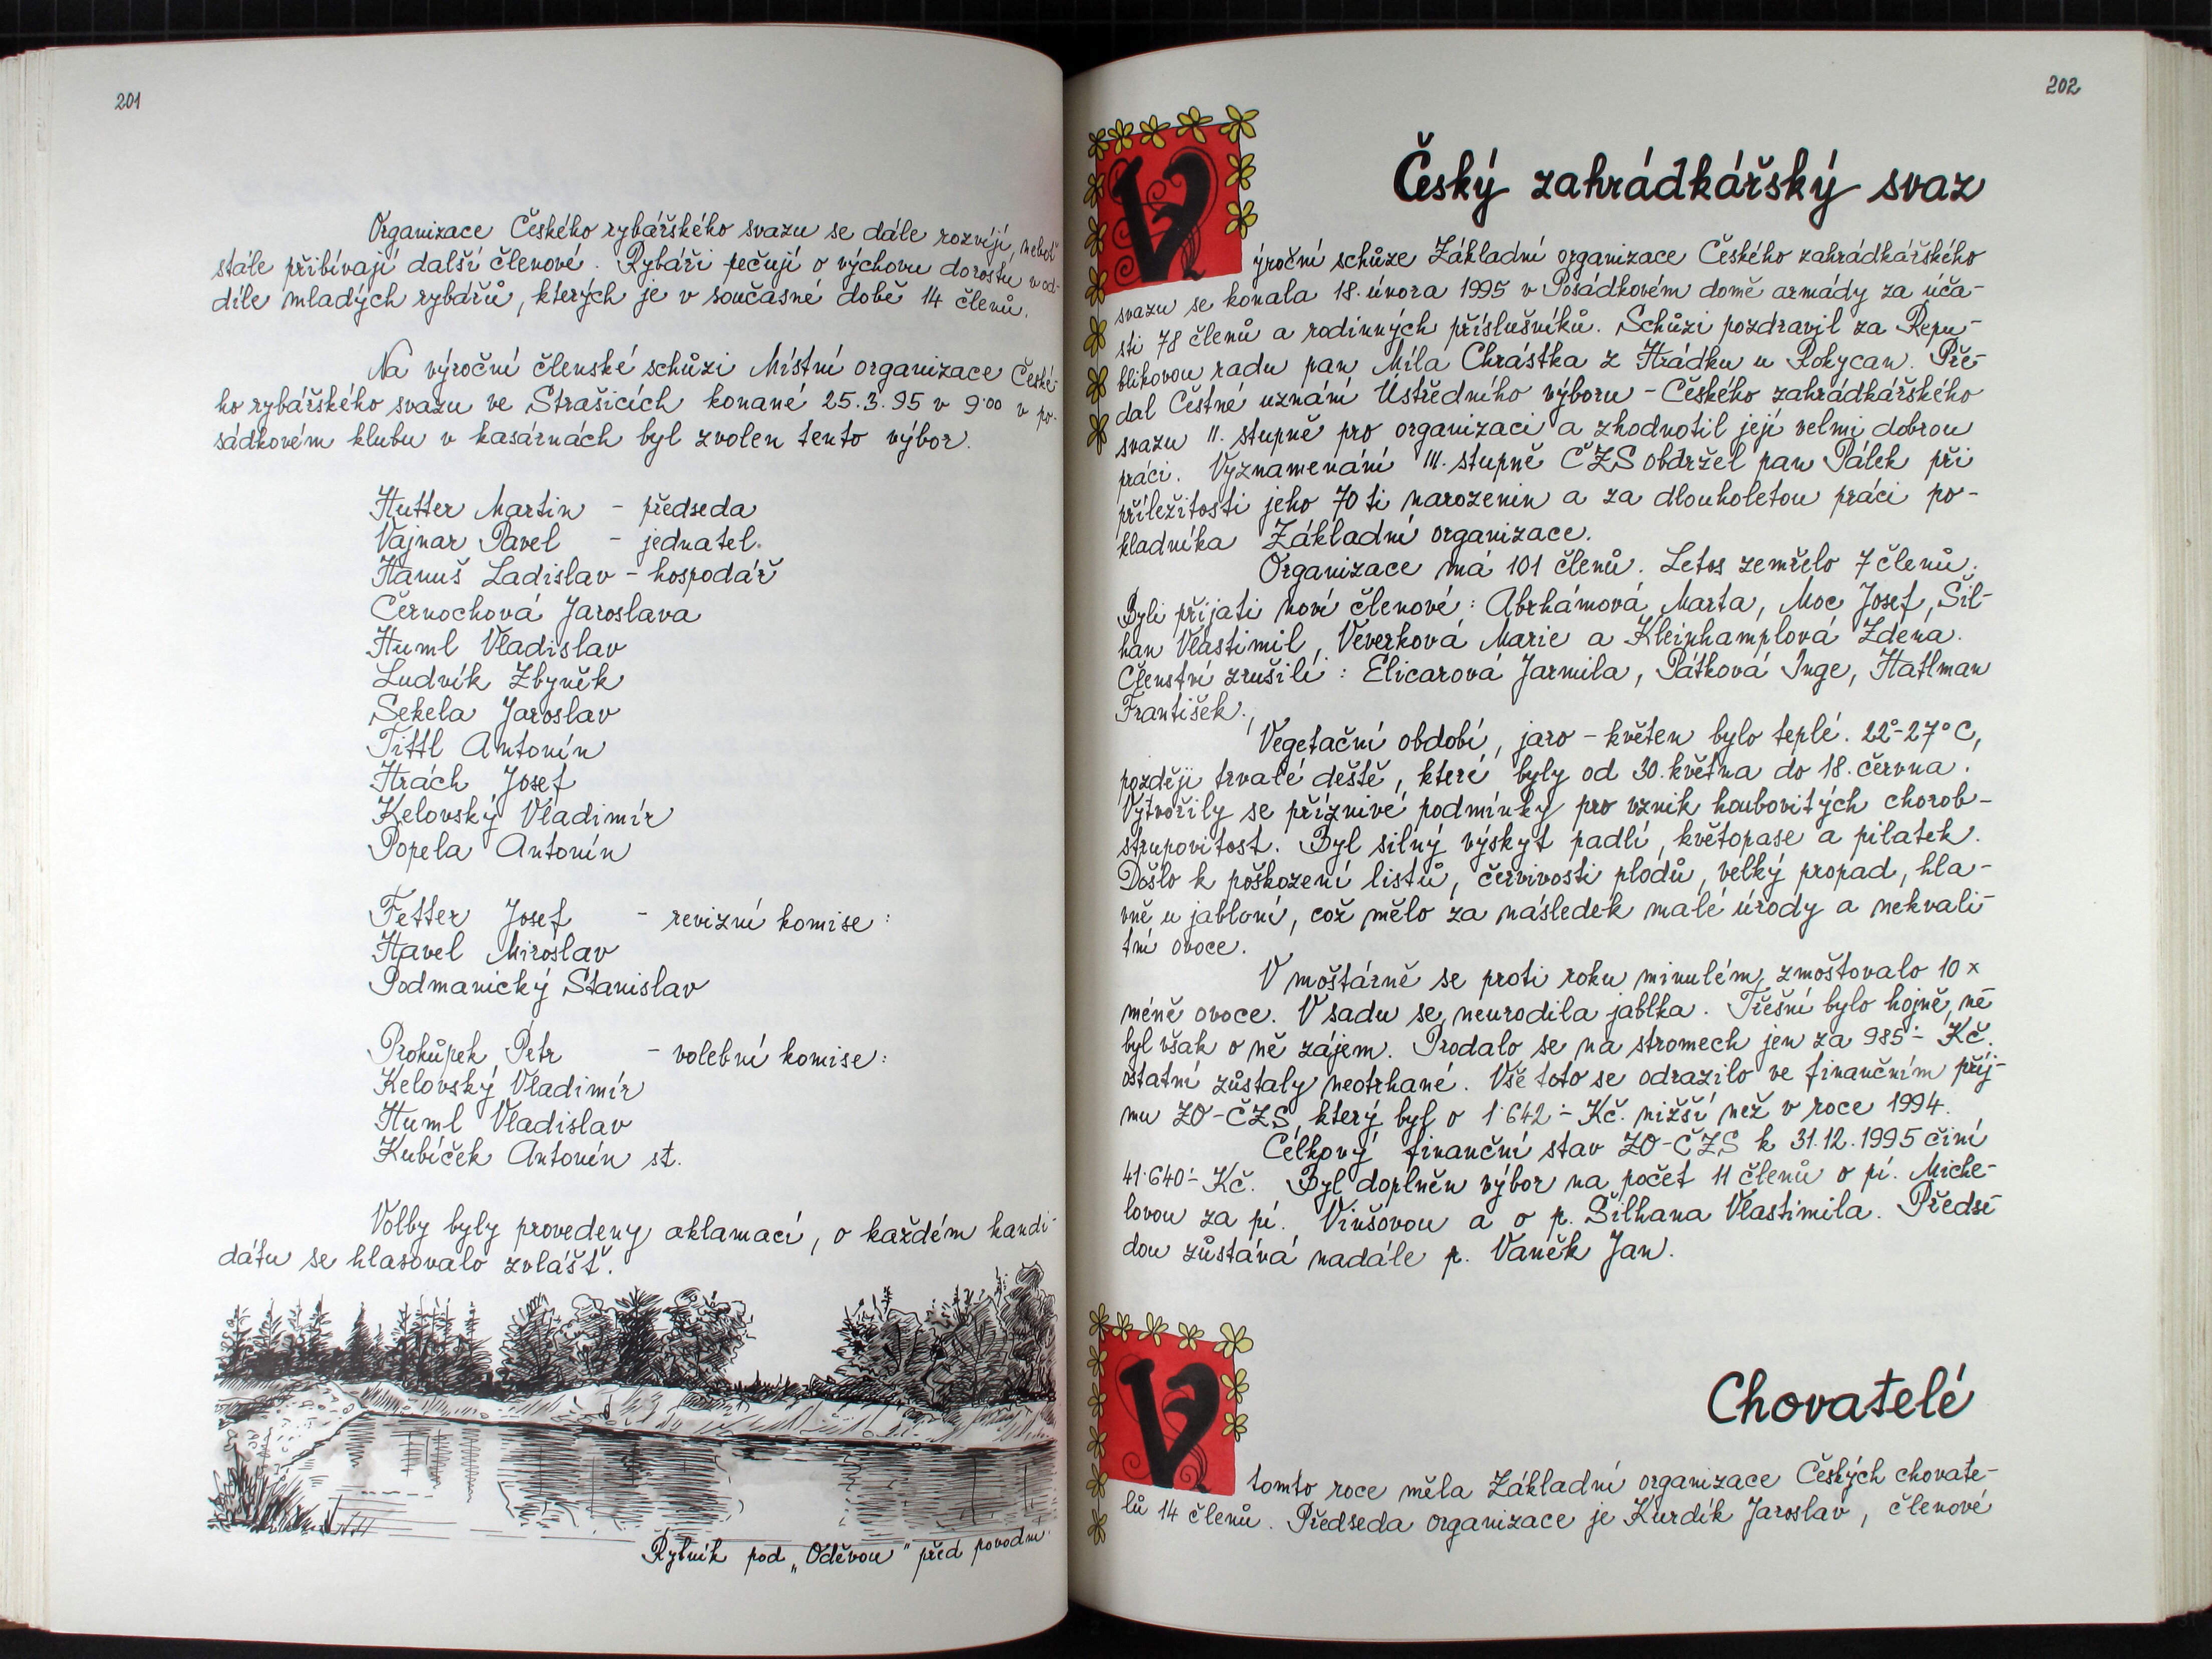 201
Organizace Českého rybářského svazu se dále rozvíjí, neboť
stále přibívají další členové. Rybáři pečují o výchovu dorostu v od-
díle mladých rybářů, kterých je v současné době 14 členů.
Na výroční členské schůzi Místní organizace České
ho rybářského svazu ve Strašicích konané 25.3.95 v 9.00 v po-
sádkovém klubu v kasárnách byl zvolen tento výbor.
Hutter Martin - předseda
Vajnar Pavel - jednatel.
Hanuš Ladislav - hospodář
Černochová Jaroslava
Huml Vladislav
Ludvík Zbyněk
Sekela Jaroslav
Tittl Antonín
Hrách Josef
Kelovský Vladimír
Popela Antonín
Fetter Josef - revizní komise:
Havel Miroslav
Podmanický Stanislav
Prokůpek Petr - volební komise:
Kelovský Vladimír
Huml Vladislav
Kubíček Antonín st.
Volby byly provedeny aklamací, o každém kandi-
dátu se hlasovalo zvlášť.
Rybník pod „Oděvou" před povodní
202
Český zahrádkářský svaz
Výroční schůze Základní organizace Českého zahrádkářského
svazu se konala 18. února 1995 v Posádkovém domě armády za úča-
sti 78 členů a rodinných příslušníků. Schůzi pozdravil za Repu-
blikovou radu pan Míla Chrástka z Hrádku u Rokycan. Pře-
dal Čestné uznání Ústředního výboru - Českého zahrádkářského
svazu II. stupně pro organizaci a zhodnotil její velmi dobrou
práci. Vyznamenání III. stupně ČZS obdržel pan Pálek při
příležitosti jeho 70 ti narozenin a za dlouholetou práci po-
kladníka Základní organizace.
Organizace má 101 členů. Letos zemřelo 7 členů.
Byli přijati noví členové: Abrhámová Marta, Moc Josef, Šil-
han Vlastimil, Veverková Marie a Kleinhamplová Zdena.
Členství zrušili: Elicarová Jarmila, Pátková Inge, Hatlman
František.
Vegetační období, jaro - květen bylo teplé. 22°-27°C,
později trvalé deště, které byly od 30. května do 18. června.
Vytvořily se příznivé podmínky pro vznik houbovitých chorob-
strupovitost. Byl silný výskyt padlí, květopase a pilatek.
Došlo k poškození listů, červivosti plodů, velký propad, hla-
vně u jabloní, což mělo za následek malé úrody a nekvali-
tní ovoce.
V moštárně se proti roku minulém, zmoštovalo 10 x
méně ovoce. V sadu se neurodila jablka. Třešní bylo hojně, ne-
byl však o ně zájem. Prodalo se na stromech jen za 985.- Kč.
ostatní zůstaly neotrhané. Vše toto se odrazilo ve finančním příj-
mu ZO-ČZS, který byl o 1.642.- Kč. nižší než v roce 1994.
Celkový finanční stav ZO-ČZS k 31.12.1995 činí
41.640.- Kč. Byl doplněn výbor na počet 11 členů o pí. Miche-
lovou za pí. Vinšovou a o p. Šilhana Vlastimila. Předse-
dou zůstává nadále p. Vaněk Jan.
Chovatelé
V tomto roce měla Základní organizace Českých chovate-
lů 14 členů. Předseda organizace je Kurdík Jaroslav, členové